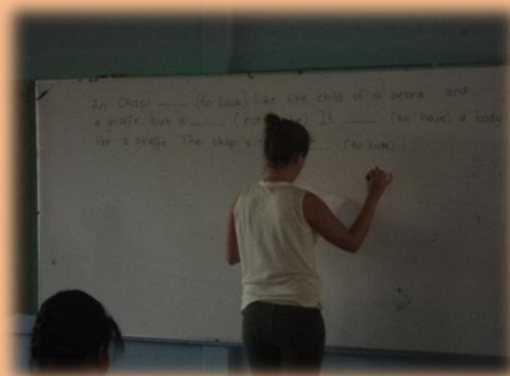 An Okapi ____ (to look) like the child of a zebra and
a giraffe, but it ____ (not It ____ (to have) a body
like a giraffe. The okapi's ____ (to hate)